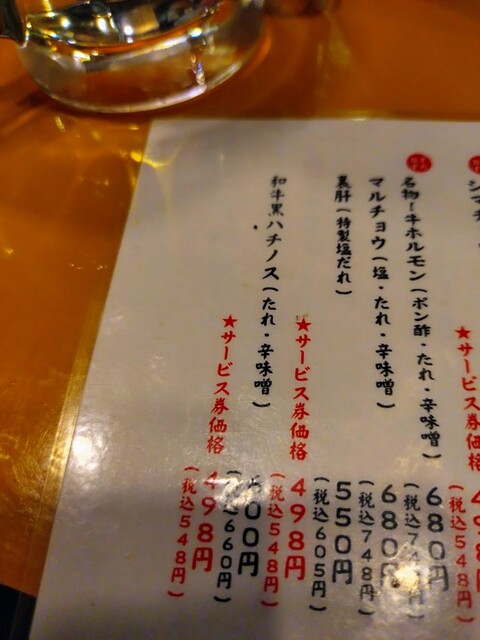 シマチ
★サービス券価格
(税込548円)
名物!牛ホルモン(ポン酢・たれ・辛味噌)
680円
マルチョウ(塩・たれ・辛味噌)
680円
(税込748円)
裏肝(特製塩だれ)
550円
(税込605円)
★サービス券価格
498円
(税込548円)
和牛黒ハチノス(たれ・辛味噌)
600円
(税込660円)
★サービス券価格
498円
(税込548円)